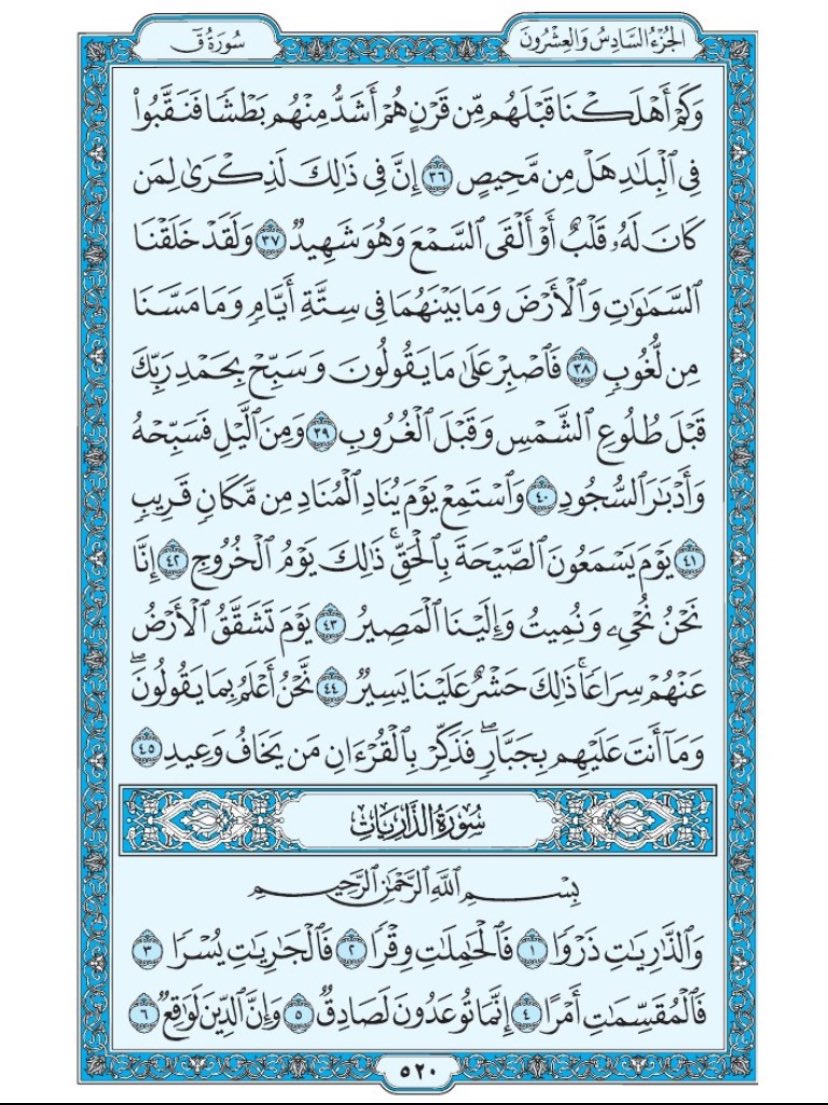 الجُزْءُ السَّادِسُ وَالعِشْرُونَ
سُورَةُ قٓ
وَكَمۡ أَهۡلَكۡنَا قَبۡلَهُم مِّن قَرۡنٍ هُمۡ أَشَدُّ مِنۡهُم بَطۡشٗا فَنَقَّبُواْ
فِي ٱلۡبِلَٰدِ هَلۡ مِن مَّحِيصٍ ٣٦ إِنَّ فِي ذَٰلِكَ لَذِكۡرَىٰ لِمَن
كَانَ لَهُۥ قَلۡبٌ أَوۡ أَلۡقَى ٱلسَّمۡعَ وَهُوَ شَهِيدٞ ٣٧ وَلَقَدۡ خَلَقۡنَا
ٱلسَّمَٰوَٰتِ وَٱلۡأَرۡضَ وَمَا بَيۡنَهُمَا فِي سِتَّةِ أَيَّامٖ وَمَا مَسَّنَا
مِن لُّغُوبٖ ٣٨ فَٱصۡبِرۡ عَلَىٰ مَا يَقُولُونَ وَسَبِّحۡ بِحَمۡدِ رَبِّكَ
قَبۡلَ طُلُوعِ ٱلشَّمۡسِ وَقَبۡلَ ٱلۡغُرُوبِ ٣٩ وَمِنَ ٱلَّيۡلِ فَسَبِّحۡهُ
وَأَدۡبَٰرَ ٱلسُّجُودِ ٤٠ وَٱسۡتَمِعۡ يَوۡمَ يُنَادِ ٱلۡمُنَادِ مِن مَّكَانٖ قَرِيبٖ
٤١ يَوۡمَ يَسۡمَعُونَ ٱلصَّيۡحَةَ بِٱلۡحَقِّۚ ذَٰلِكَ يَوۡمُ ٱلۡخُرُوجِ ٤٢ إِنَّا
نَحۡنُ نُحۡيِۦ وَنُمِيتُ وَإِلَيۡنَا ٱلۡمَصِيرُ ٤٣ يَوۡمَ تَشَقَّقُ ٱلۡأَرۡضُ
عَنۡهُمۡ سِرَاعٗاۚ ذَٰلِكَ حَشۡرٌ عَلَيۡنَا يَسِيرٞ ٤٤ نَّحۡنُ أَعۡلَمُ بِمَا يَقُولُونَۖ
وَمَآ أَنتَ عَلَيۡهِم بِجَبَّارٖۖ فَذَكِّرۡ بِٱلۡقُرۡءَانِ مَن يَخَافُ وَعِيدِ ٤٥
سُورَةُ الذَّارِيَاتِ
بِسۡمِ ٱللَّهِ ٱلرَّحۡمَٰنِ ٱلرَّحِيمِ
وَٱلذَّٰرِيَٰتِ ذَرۡوٗا ١ فَٱلۡحَٰمِلَٰتِ وِقۡرٗا ٢ فَٱلۡجَٰرِيَٰتِ يُسۡرٗا ٣
فَٱلۡمُقَسِّمَٰتِ أَمۡرًا ٤ إِنَّمَا تُوعَدُونَ لَصَادِقٞ ٥ وَإِنَّ ٱلدِّينَ لَوَٰقِعٞ ٦
٥٢٠